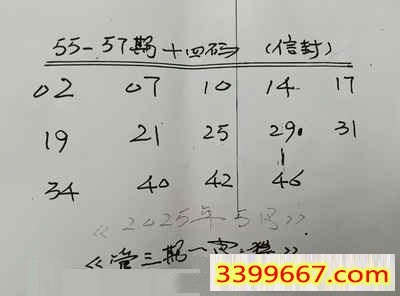 55-57期十四码 (信封)
02 07 10 14 17
19 21 25 29. 31
34 40 42 46
《2025年5月》
《管三期一定 稳》
3399667.com